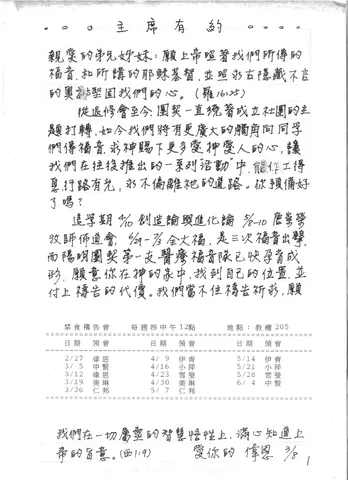 主席有約
親愛的弟兄姊妹：願上帝照著我們所傳的
福音，和所講的耶穌基督，並照永古隱藏不言
的奧秘堅固我們的心。（羅16:25）
從退修會至今，團契一直繞著成立社團的主
題打轉，如今我們將有更廣大的觸角向同學
們傳福音，求神賜下更多愛神愛人的心，讓
我們在往後推出的"一系列活動"中，能作工得
息，行路有光，永不偏離祂的道路。你預備好
了嗎？
這學期4/10 創造論與進化論
牧師佈道會，金大福，是三次福音出擊，
而陽明團契第一支醫療福音隊已快孕育成
形，願意你在神的羣中，找到自己的位置，並
付上禱告的代價。我們當不住禱告祈求，願
禁食禱告會 每週四中午12點 地點：教權205
日期 領會 日期 領會 日期 領會
2/27 偉恩 4/ 9 伊齊 5/14 伊齊
3/ 5 中賢 4/16 小羿 5/21 小羿
3/12 偉恩 4/23 常瑩 5/28 常瑩
3/19 美琳 4/30 美琳 6/ 4 中賢
3/26 仁邦 5/ 7 仁邦
我們在一切屬靈的智慧悟性上，滿心知道上
帝的旨意。（西1:9） 愛你的 偉恩 3/8
1